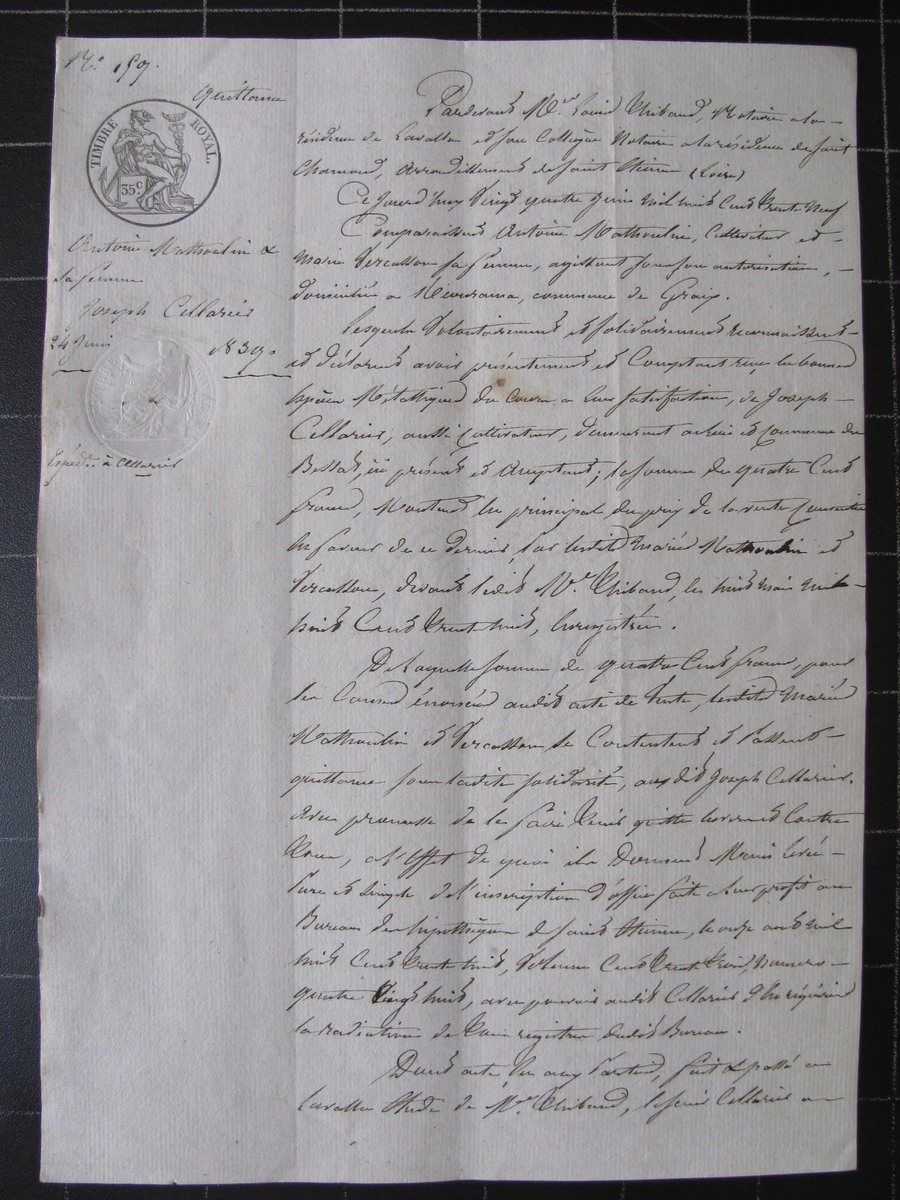 N.° 159.
Quittance
TIMBRE ROYAL.
35 C
Antoine Mathoulin &
Sa femme
Joseph Cellarier
24 Juin 1839
Expéd.on à Cellarier
Pardevant M.e Louis Thibaud, Notaire a la
résidence de Lavalla et son Collègue Notaire a la résidence de Saint
Chamond, arrondissement de Saint Etienne (Loire)
Ce Jourd'huy Vingt quatre Juin mil huit Cent Trente Neuf
Comparaissent Antoine Mathoulin, Cultivateur et
marie Vercasson sa femme, agissant sous son autorisation,
domiciliés a commune de Graix.
Lesquels Volontairement et solidairement reconnaissent
et déclarent avoir présentement et Comptant reçu en bonnes
espèces Métalliques du Cours a leur satisfaction, de Joseph
Cellarier, aussi Cultivateur, demeurant au lieu et Commune de
Bessat, ici présent et Acceptant; la somme de quatre Cent
francs, Montant du principal du prix de la vente Consentie
en faveur de ce dernier, par lesdits mariés Mathoulin et
Vercasson, devant ledit M.e Thibaud, le huit mai mil
huit Cent Trente huit, Enregistrée.
De laquelle somme de quatre Cent francs, pour
les Causes énoncées audit acte de Vente, lesdits Mariés
Mathoulin et Vercasson se Contentent et Passent
quittance sous ladite solidarité, audit Joseph Cellarier.
avec promesse de le faire Tenir quitte envers et Contre
Tous, a l'Effet de quoi ils Donnent Main levée
Pure et Simple de l'inscription d'office faite a leur profit au
Bureau des hypothèques de Saint Etienne, le onze août mil
huit Cent Trente huit, Volume Cent Trente Trois, Numéro
quatre Vingt huit, avec pouvoir audit Cellarier d'En réquérir
la radiation de Tous registres dudit Bureau.
Dont acte, lu aux Parties, fait & passé a
Lavalla Etude de M.e Thibaud, le sieur Cellarier a